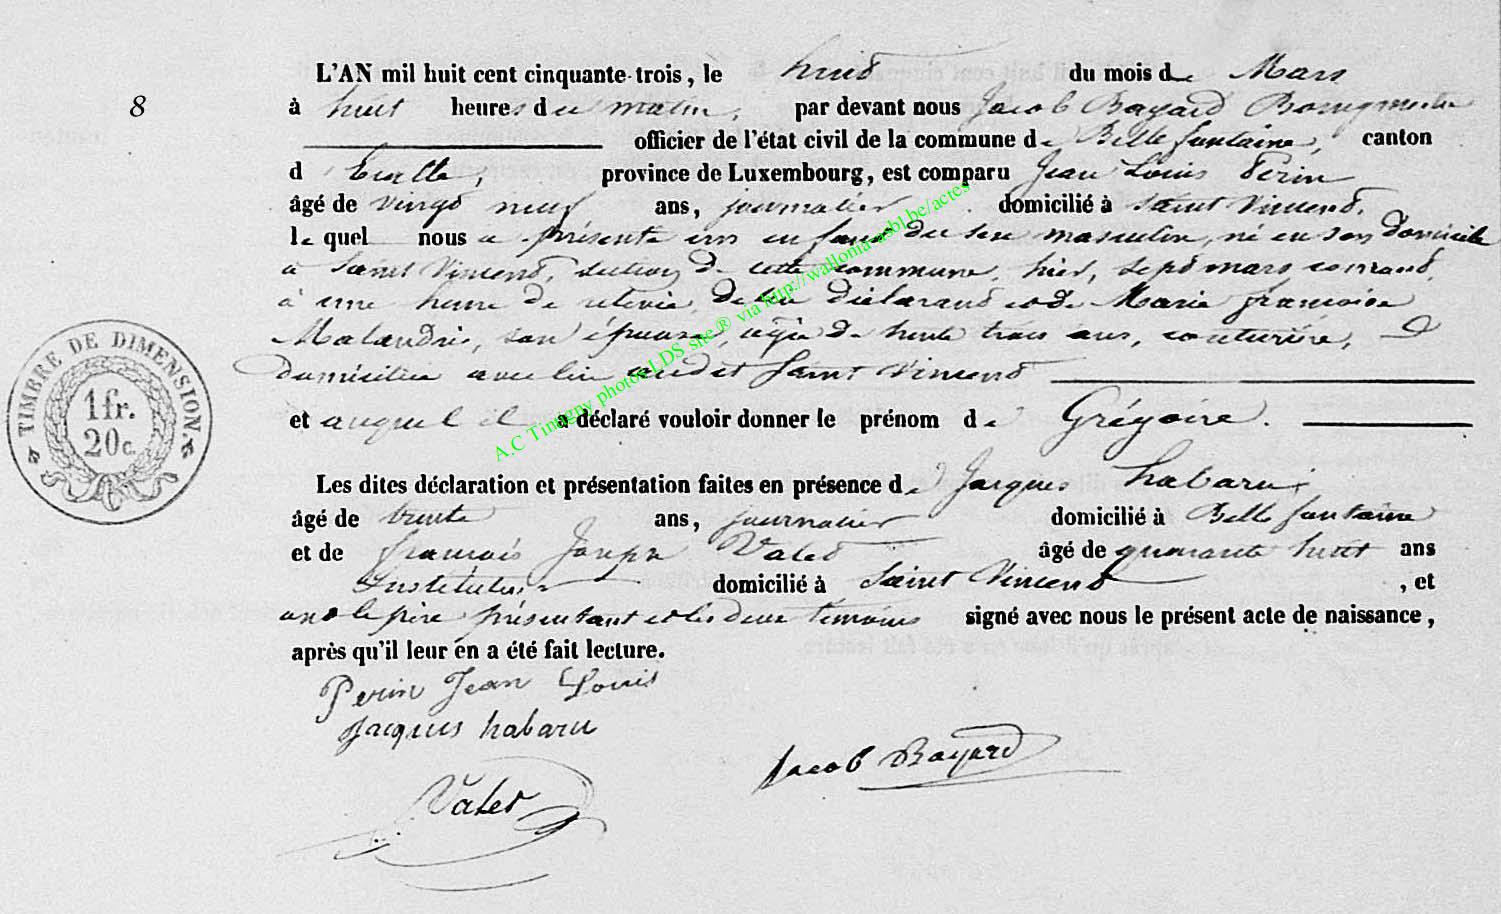 L'AN mil huit cent cinquante-trois, le huid du mois de Mars
8
à huit heures du matin, par devant nous Jacob Bayard Bourgmestre
officier de l'état civil de la commune de Bellefontaine, canton
d'Etalle, province de Luxembourg, est comparu Jean Louis Perin
âgé de vingt neuf ans, journalier domicilié à Saint Vincent,
le quel nous a présenté un enfant du sexe masculin, né en son domicile
à Saint Vincent, section de cette commune, hier, sept mars courant,
à une heure de relevée, de lui déclarant et de Marie françoise
Malandrie, son épouse, agée de trente trois ans, couturière,
domiciliée avec lui audit Saint Vincent
et auquel il a déclaré vouloir donner le prénom de Grégoire.
TIMBRE DE DIMENSION
1 fr.
20 c.
Les dites déclaration et présentation faites en présence de Jacques habaru,
âgé de trente ans, journalier domicilié à Bellefontaine
et de françois Joseph Valet âgé de quarante huit ans
Instituteur domicilié à Saint Vincent, et
ont le père présentant et les deux témoins signé avec nous le présent acte de naissance,
après qu'il leur en a été fait lecture.
Perin Jean Louis
Jacques habaru
Jacob Bayard
Valet
A.C Tintigny photos LDS site® via http://wallonia-asbl.be/actes